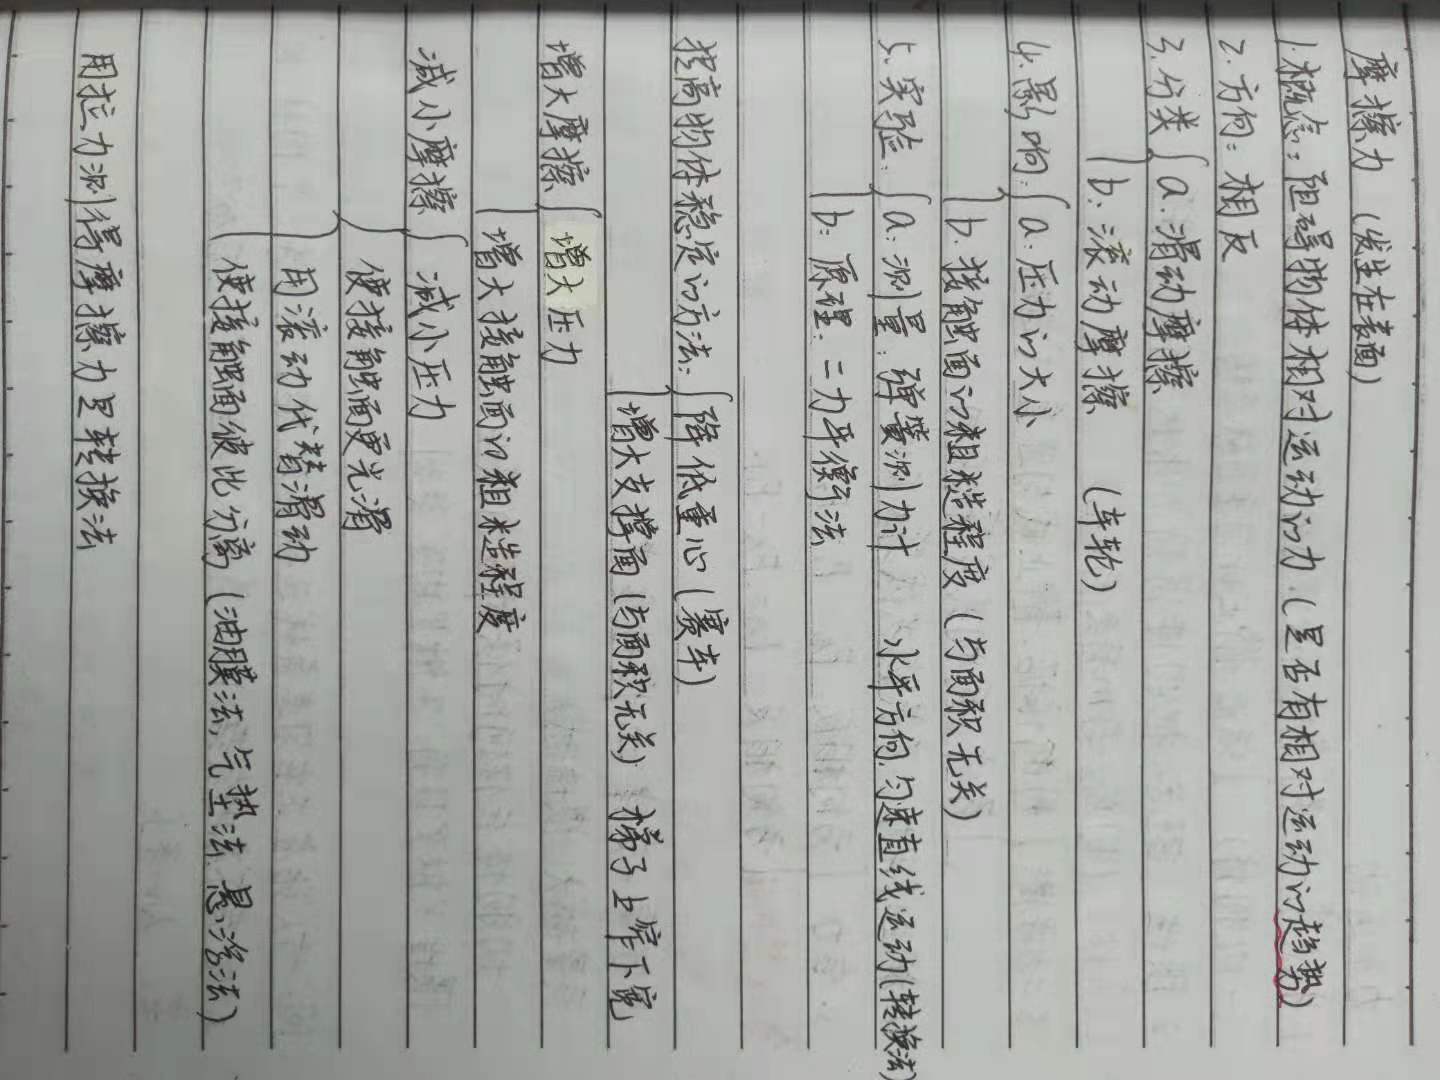 摩擦力 (发生在表面)
1.概念:阻碍物体相对运动的力.(是否有相对运动的趋势)
2.方向:相反
3.分类{a.滑动摩擦
b:滚动摩擦 (车轮)
4.影响:{a:压力的大小
b.接触面的粗糙程度(与面积无关)
5.实验:{a:测量:弹簧测力计 水平方向,匀速直线运动(转换法)
b:原理:二力平衡法
提高物体稳定的方法:{降低重心(赛车)
增大支撑面(与面积无关) 梯子上窄下宽
增大摩擦{增大压力
增大接触面的粗糙程度
减小摩擦{减小压力
使接触面更光滑
用滚动代替滑动
使接触面彼此分离(油膜法,气垫法,悬浮法)
用拉力测得摩擦力是转换法